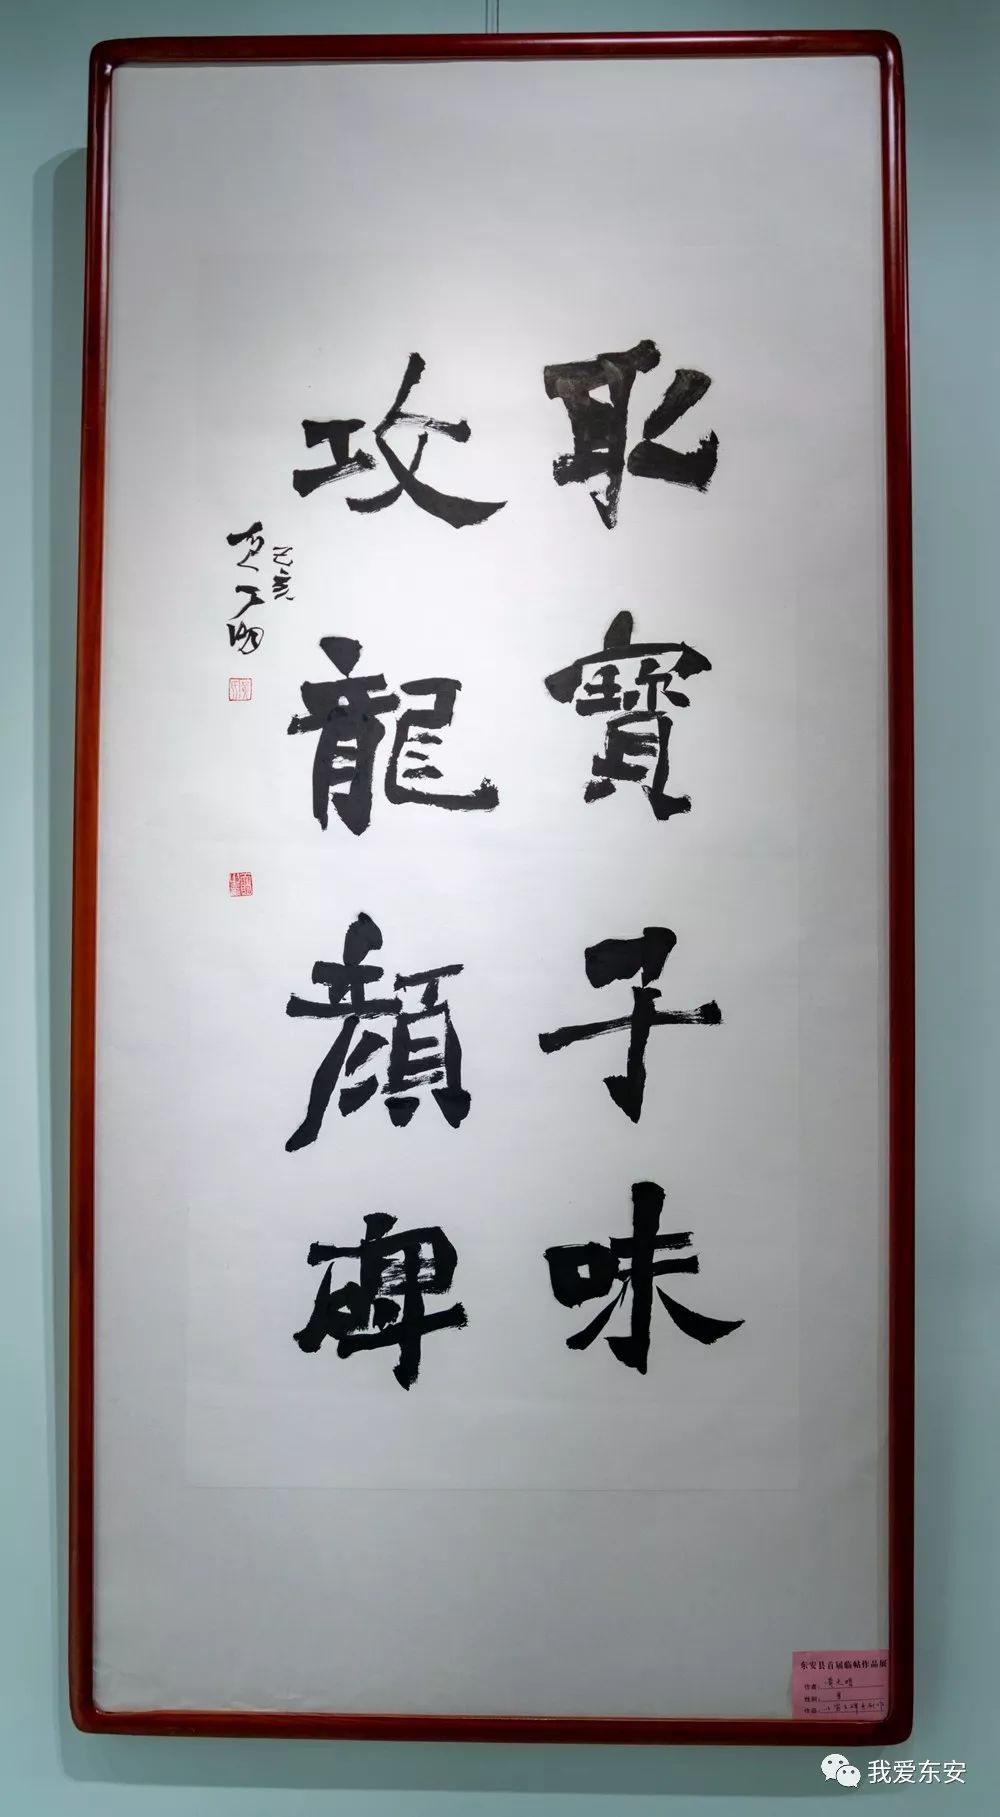 取寶子味
攻龍顏碑
己亥
东安县首届临帖作品展
作者:
性别: 男
作品:
我爱东安